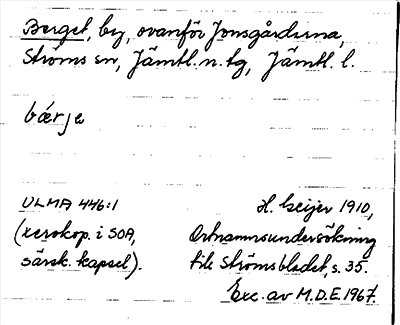 Berget, by, ovanför Jonsgårdarna,
Ströms sn, Jämtl. n. tg, Jämtl. l.
bærje
ULMA 446:1
H. Geijer 1910,
(xerokop. i SOA,
Ortnamnsundersökning
särsk. kapsel).
till Strömsbladet, s. 35.
Exc. av M.D.E. 1967.